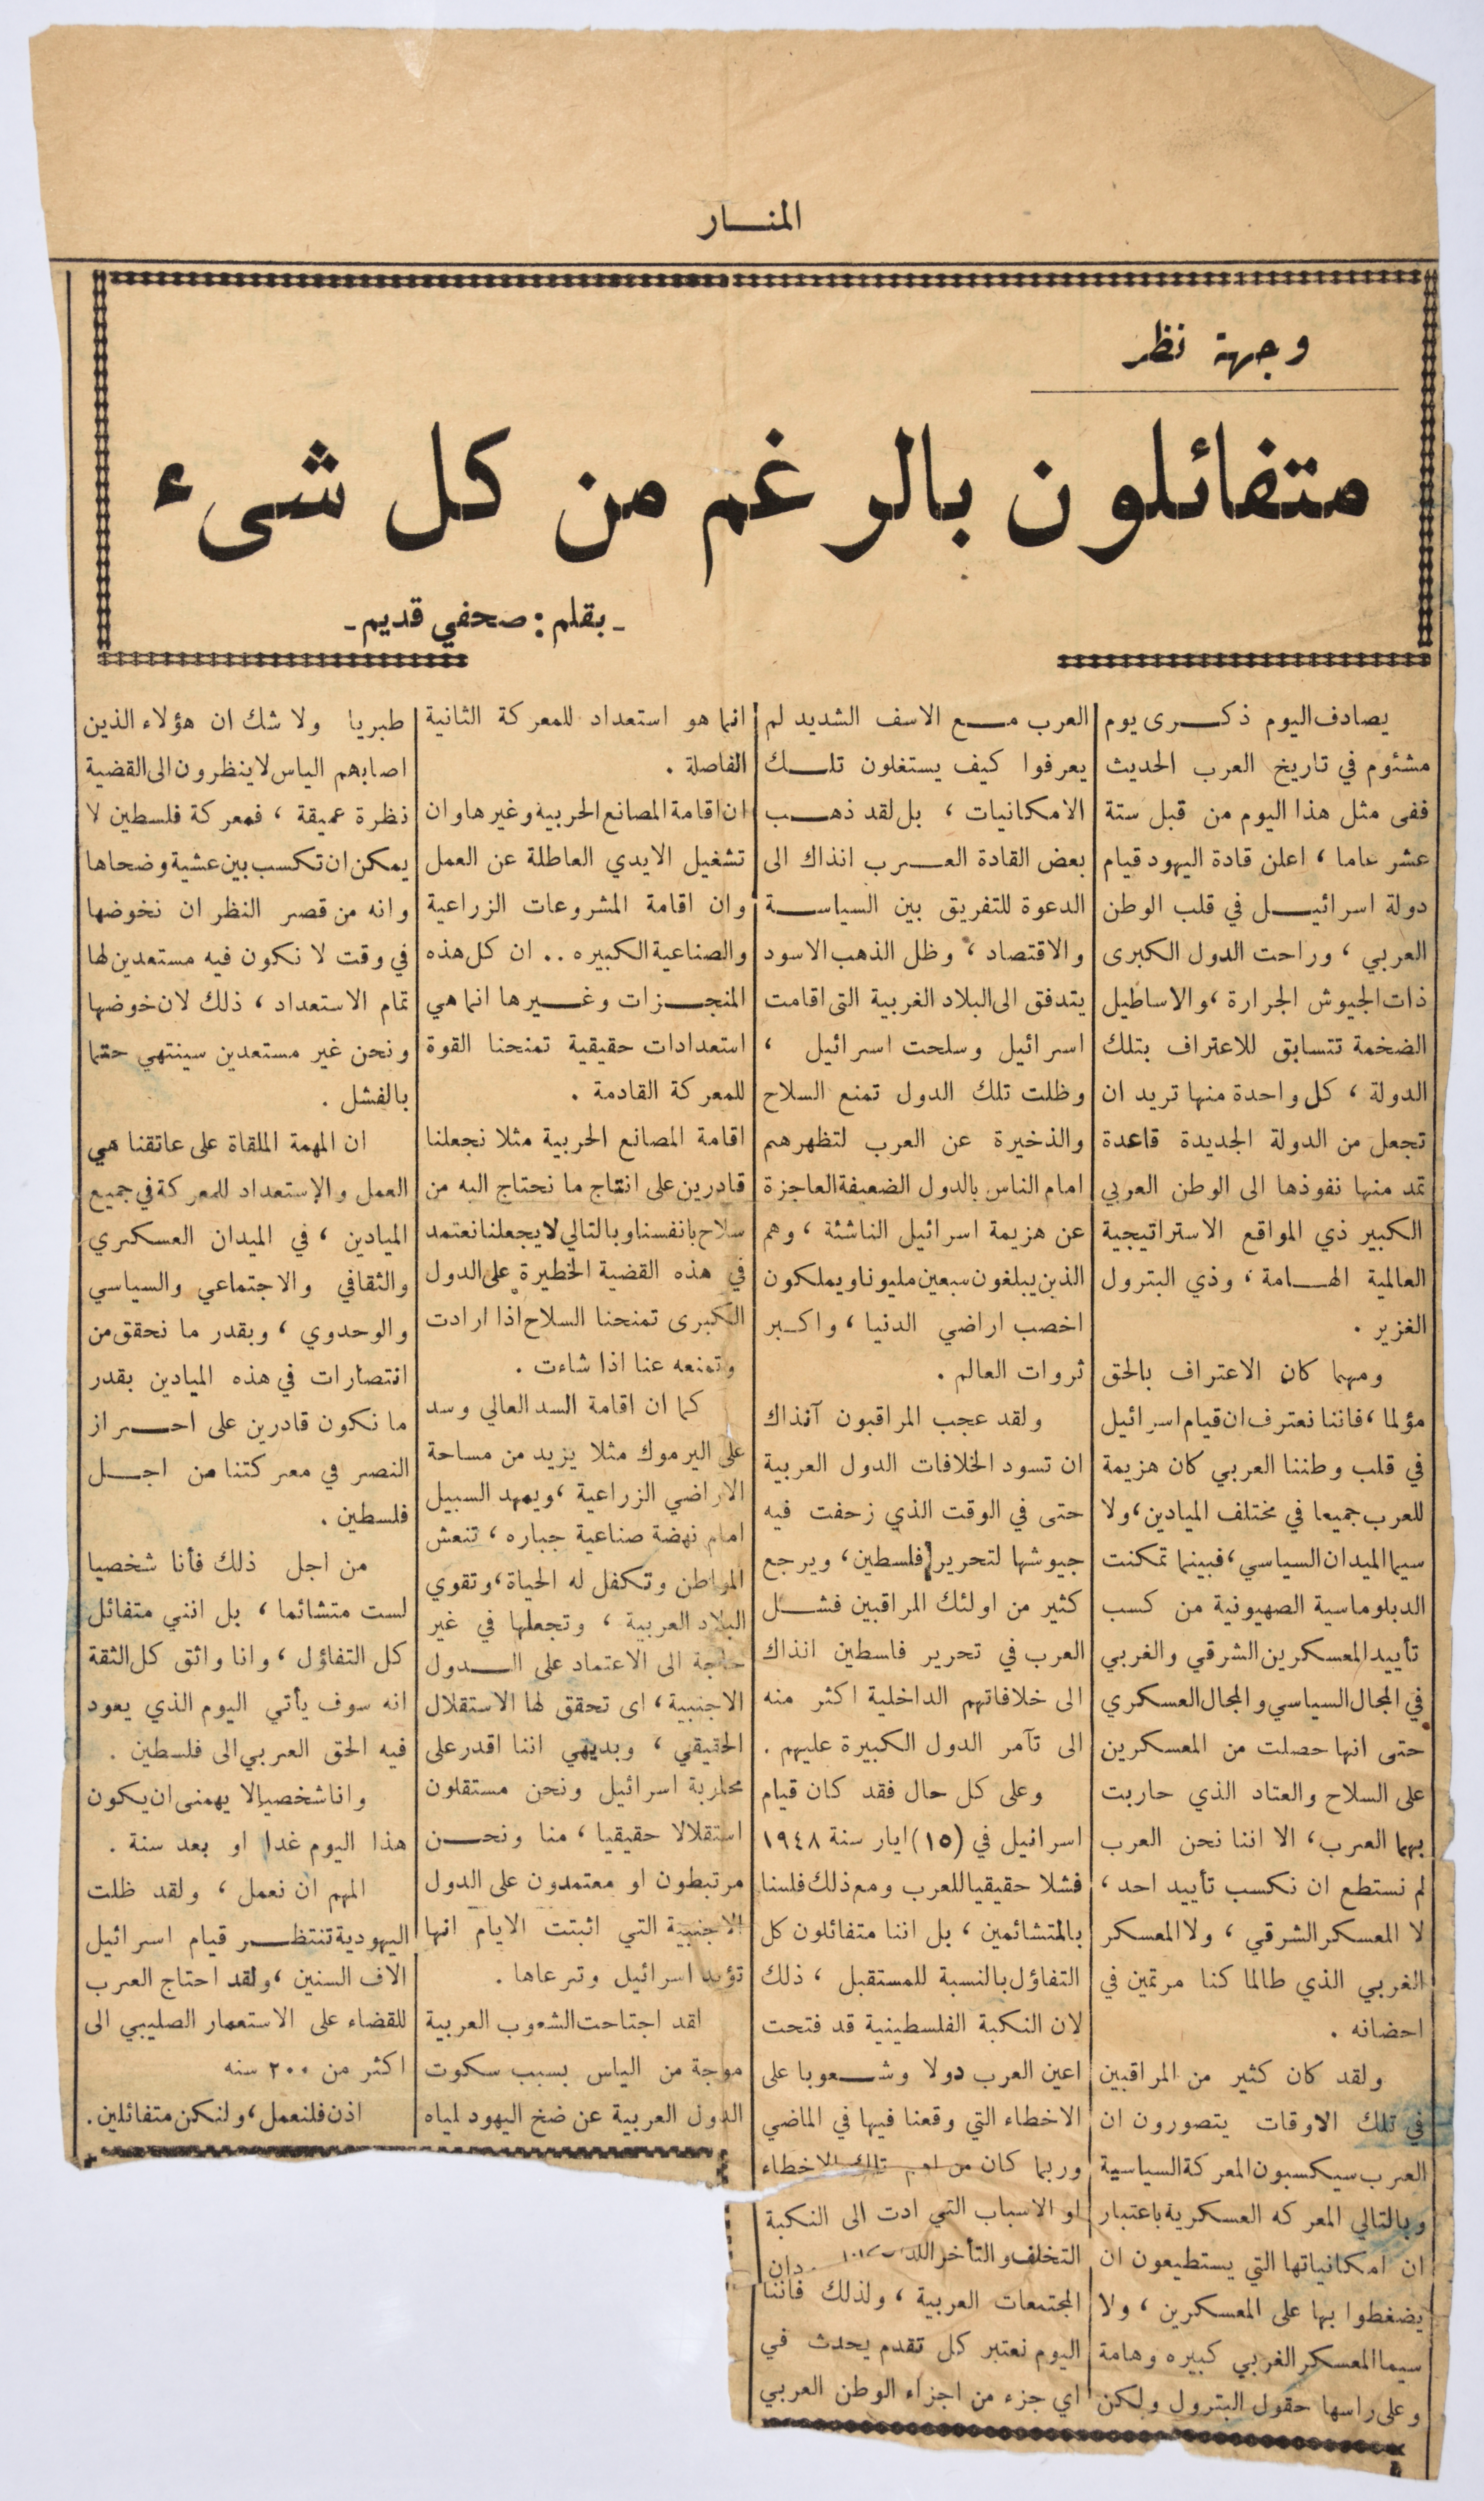 المنـــار
وجهة نظر
متفائلون بالرغم من كل شىء
ـ بقلم : صحفي قديم ـ
يصادف اليوم ذكـــرى يوم
مشئوم في تاريخ العرب الحديث
ففى مثل هذا اليوم من قبل ستة
عشر عاما ، اعلن قادة اليهود قيام
دولة اسرائيـــل في قلب الوطن
العربي ، وراحت الدول الكبرى
ذات الجيوش الجرارة ، والاساطيل
الضخمة تتسابق للاعتراف بتلك
الدولة ، كل واحدة منها تريد ان
تجعل من الدولة الجديدة قاعدة
تمد منها نفوذها الى الوطن العربي
الكبير ذي المواقع الاستراتيجية
العالمية الهـــامة ، وذي البترول
الغزير .
ومهما كان الاعتراف بالحق
مؤلما ، فاننا نعترف ان قيام اسرائيل
في قلب وطننا العربي كان هزيمة
للعرب جميعا في مختلف الميادين ، ولا
سيما الميدان السياسي ، فبينما تمكنت
الدبلوماسية الصهيونية من كسب
تأييد المعسكرين الشرقي والغربي
في المجال السياسي والمجال العسكري
حتى انها حصلت من المعسكرين
على السلاح والعتاد الذي حاربت
بهما العرب ، الا اننا نحن العرب
لم نستطع ان نكسب تأييد احد ،
لا المعسكر الشرقي ، ولا المعسكر
الغربي الذي طالما كنا مرتمين في
احضانه .
ولقد كان كثير من المراقبين
في تلك الاوقات يتصورون ان
العرب سيكسبون المعركة السياسية
وبالتالي المعركه العسكرية باعتبار
ان امكانياتها التي يستطيعون ان
يضغطوا بها على المعسكرين ، ولا
سيما المعسكر الغربي كبيره وهامة
وعلى راسها حقول البترول ولكن
العرب مـــع الاسف الشديد لم
يعرفوا كيف يستغلون تلـــك
الامكانيات ، بل لقد ذهـــب
بعض القادة العـــرب انذاك الى
الدعوة للتفريق بين السياســـة
والاقتصاد ، وظل الذهب الاسود
يتدفق الى البلاد الغربية التى اقامت
اسرائيل وسلحت اسرائيل ،
وظلت تلك الدول تمنع السلاح
والذخيرة عن العرب لتظهرهم
امام الناس بالدول الضعيفة العاجزة
عن هزيمة اسرائيل الناشئة ، وهم
الذين يبلغون سبعين مليونا ويملكون
اخصب اراضي الدنيا ، واكـــبر
ثروات العالم .
ولقد عجب المراقبون آنذاك
ان تسود الخلافات الدول العربية
حتى في الوقت الذي زحفت فيه
جيوشها لتحرير فلسطين ، ويرجع
كثير من اولئك المراقبين فشـــل
العرب في تحرير فلسطين انذاك
الى خلافاتهم الداخلية اكثر منه
الى تآمر الدول الكبيرة عليهم .
وعلى كل حال فقد كان قيام
اسرائيل في (١٥) ايار سنة ١٩٤٨
فشلا حقيقيا للعرب ومع ذلك فلسنا
بالمتشائمين ، بل اننا متفائلون كل
التفاؤل بالنسبة للمستقبل ، ذلك
لان النكبة الفلسطينية قد فتحت
اعين العرب دولا وشـــعوبا على
الاخطاء التي وقعنا فيها في الماضي
وربما كان من اهم تلك الاخطاء
او الاسباب التي ادت الى النكبة
التخلف والتأخر
المجتمعات العربية ، ولذلك فاننا
اليوم نعتبر كل تقدم يحدث في
اي جزء من اجزاء الوطن العربي
انما هو استعداد للمعركة الثانية
الفاصلة .
ان اقامة المصانع الحربية وغيرها وان
تشغيل الايدي العاطلة عن العمل
وان اقامة المشروعات الزراعية
والصناعية الكبيره .. ان كل هذه
المنجـــزات وغـــيرها انما هي
استعدادات حقيقية تمنحنا القوة
للمعركة القادمة .
اقامة المصانع الحربية مثلا تجعلنا
قادرين على انتاج ما نحتاج اليه من
سلاح بانفسنا وبالتالي لا يجعلنا نعتمد
في هذه القضية الخطيرة على الدول
الكبرى تمنحنا السلاح اذا ارادت
وتمنعه عنا اذا شاءت .
كما ان اقامة السد العالي وسد
على اليرموك مثلا يزيد من مساحة
الاراضي الزراعية ، ويمهد السبيل
امام نهضة صناعية جباره ، تنعش
المواطن وتكفل له الحياة ، وتقوي
البلاد العربية ، وتجعلها في غير
حاجة الى الاعتماد على الـــدول
الاجنبية ، اى تحقق لها الاستقلال
الحقيقي ، وبديهي اننا اقدر على
محاربة اسرائيل ونحن مستقلون
استقلالا حقيقيا ، منا ونحـــن
مرتبطون او معتمدون على الدول
الاجنبية التي اثبتت الايام انها
تؤيد اسرائيل وترعاها .
لقد اجتاحت الشعوب العربية
موجة من الياس بسبب سكوت
الدول العربية عن ضخ اليهود لمياه
طبريا ولا شك ان هؤلاء الذين
اصابهم الياس لا ينظرون الى القضية
نظرة عميقة ، فمعركة فلسطين لا
يمكن ان تكسب بين عشية وضحاها
وانه من قصر النظر ان نخوضها
في وقت لا نكون فيه مستعدين لها
تمام الاستعداد ، ذلك لان خوضها
ونحن غير مستعدين سينتهي حتما
بالفشل .
ان المهمة الملقاة على عاتقنا هي
العمل والإستعداد للمعركة في جميع
الميادين ، في الميدان العسكري
والثقافي والاجتماعي والسياسي
والوحدوي ، وبقدر ما نحقق من
انتصارات في هذه الميادين بقدر
ما نكون قادرين على احـــراز
النصر في معركتنا من اجـــل
فلسطين .
من اجل ذلك فأنا شخصيا
لست متشائما ، بل انني متفائل
كل التفاؤل ، وانا واثق كل الثقة
انه سوف يأتي اليوم الذي يعود
فيه الحق العربي الى فلسطين .
وانا شخصيا لا يهمنى ان يكون
هذا اليوم غدا او بعد سنة .
المهم ان نعمل ، ولقد ظلت
اليهودية تنتظـــر قيام اسرائيل
الاف السنين ، ولقد احتاج العرب
للقضاء على الاستعمار الصليبي الى
اكثر من ٢٠٠ سنه
اذن فلنعمل ، ولنكن متفائلين .